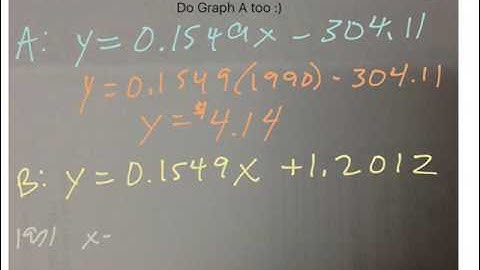 Do Graph A too :)
A: y = 0.1549x - 304.11
y = 0.1549(1990) - 304.11
y = $4.14
B: y = 0.1549x + 1.2012
x -